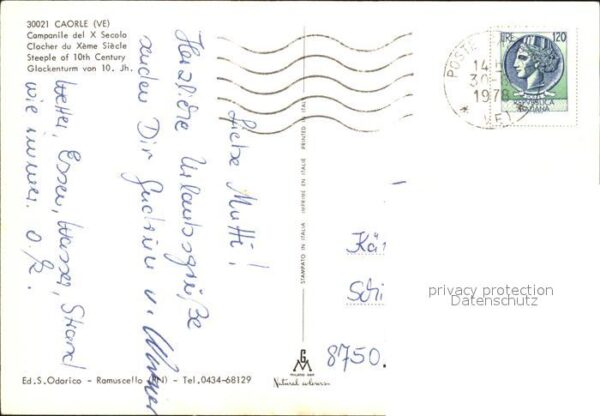 30021 CAORLE (VE)
Campanile del X Secolo
Clocher du Xème Siècle
Steeple of 10th Century
Glockenturm von 10. Jh.
Liebe Mutti!
Herzliche Urlaubsgrüße
senden Dir Gudrun u.
Wetter, Essen, Wasser, Strand
wie immer o.k.
STAMPATO IN ITALIA IMPRIMÉ EN ITALIE PRINTED IN ITALY
POSTE
14
30
1978
(VE)
LIRE 120
REPUBBLICA
ITALIANA
8750
privacy protection
Datenschutz
Ed. S. Odorico - Ramuscello (PN) - Tel. 0434-68129
Natural colours